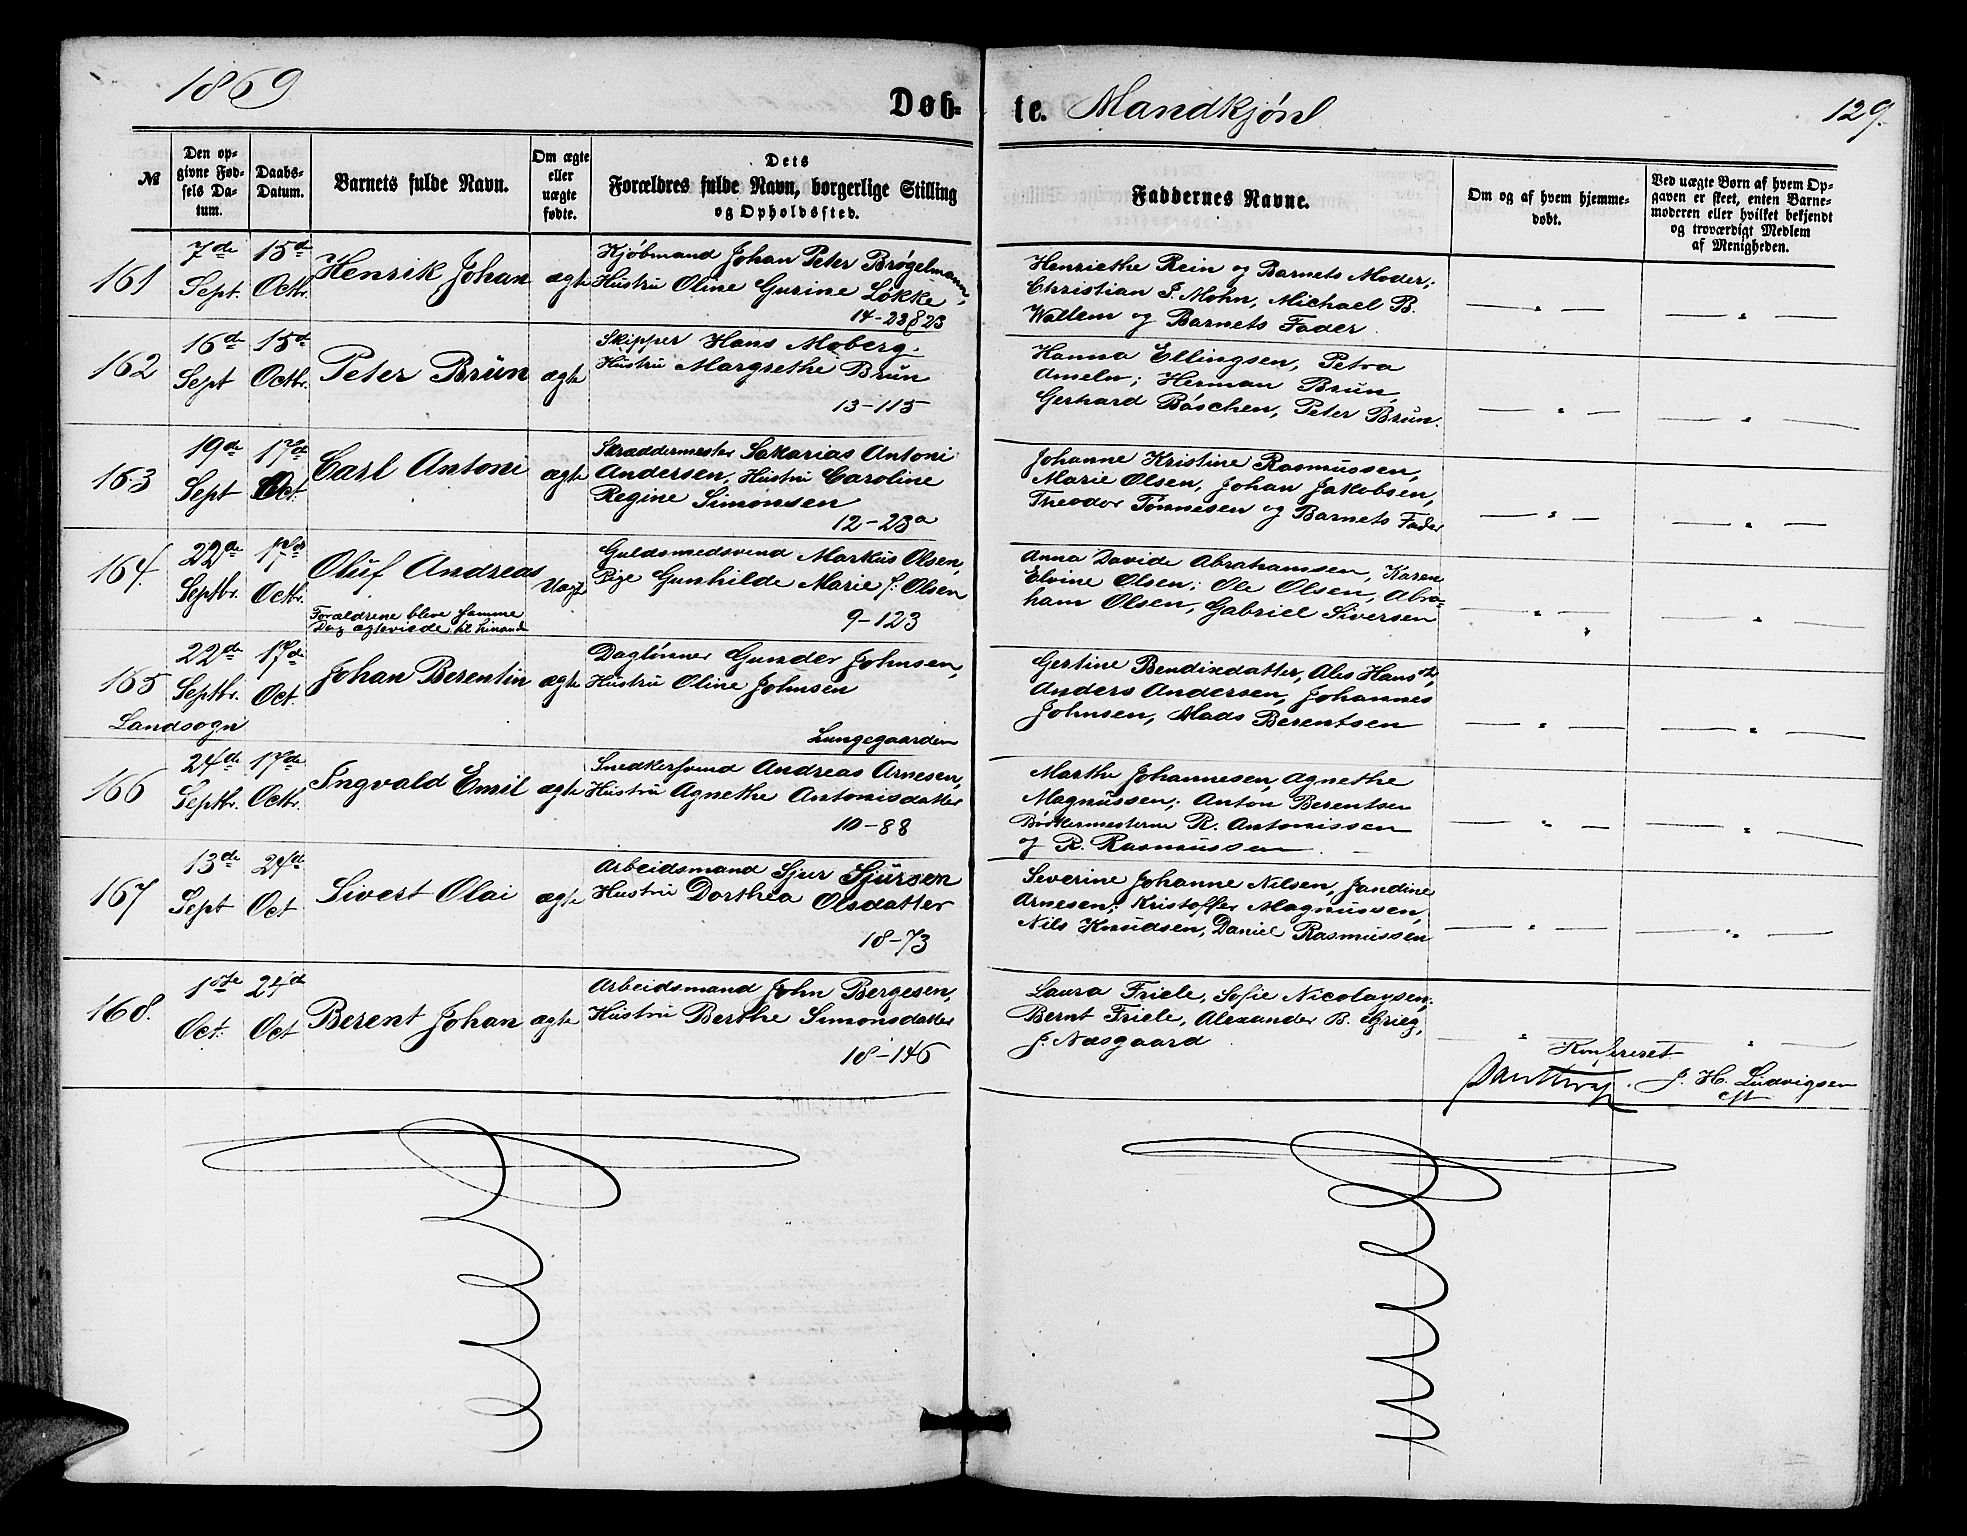 1869
Døb-
te. Mandkjøn
129.
№
Den op-
givne Fød-
sels Da-
tum.
Daabs-
Datum.
Barnets fulde Navn.
Om ægte
eller
uægte
fødte.
Dets
Forældres fulde Navn, borgerlige Stilling
og Opholdssted.
Faddernes Navne.
Om og af hvem hjemme-
døbt.
Ved uægte Børn af hvem Op-
gaven er skeet, enten Barne-
moderen eller hvilket bekjendt
og troværdigt Medlem
af Menigheden.
161
7de
Sept.
15d
Octbr.
Henrik Johan
ægte
Kjøbmand Johan Peter Brøgelmann,
Hustru Oline Gurine Løkke
14-23/23
Henriethe Rein og Barnets Moder;
Christian J. Mohn, Michael B.
Wallem og Barnets Fader.
162
16de
Sept
15d
Octbr.
Peter Brün
ægte
Skipper Hans Moberg.
Hustru Margrethe Brün
13-115
Hanna Ellingsen, Petra
Ameln; Herman Brün,
Gerhard Böschen, Peter Brün.
163
19de
Sept
17de
Oct.
Carl Antoni
ægte
Skræddermester Sakarias Antoni
Andersen, Hustru Caroline
Regine Simonsen
12-23a
Johanne Kristine Rasmussen,
Marie Olsen, Johan Jakobsen,
Theodor Tønnesen og Barnets Fader
164.
22de
Septbr.
17de
Octbr.
Oluf Andreas
Forældrene bleve samme
Dag ægteviede til hinanden
Uægte
Guldsmedsvend Markus Olsen,
Pige Gunhilde Marie f. Olsen
9-123
Anna Davide Abrahamsen, Karen
Elvine Olsen; Ole Olsen, Abra-
ham Olsen, Gabriel Siversen
165
Landsogn
22de
Septbr.
17de
Oct.
Johan Berentin
ægte
Daglønner Gunder Johnsen,
Hustru Oline Johnsen
Lungegaarden
Gertine Bendixdatter, Ales Hansdtr,
Anders Andersen, Johannes
Johnsen, Mads Berentsen
166
24de
Septbr.
17de
Octbr.
Ingvald Emil
ægte
Snedkersvend Andreas Arnesen,
Hustru Agnethe Antonisdatter
10-88
Marthe Johannesen, Agnethe
Magnussen; Anton Berentsen
Bødkermesterne R. Antonissen
og R. Rasmussen
167
13de
Sept
24de
Oct
Sivert Olai
ægte
Arbeidsmand Sjur Sjursen
Hustru Dorthea Olsdatter
18-73
Severine Johanne Nilsen, Jandine
Arnesen; Kristoffer Magnussen,
Nils Knudsen, Daniel Rasmussen
168.
1ste
Oct.
24de
Oct
Berent Johan
ægte
Arbeidsmand John Bergesen,
Hustru Berthe Simonsdatter
18-146
Laura Friele, Sofie Nicolaysen;
Bernt Friele, Alexander B. Grieg,
J. Næsgaard
Konfereret
J. H. Ludvigsen